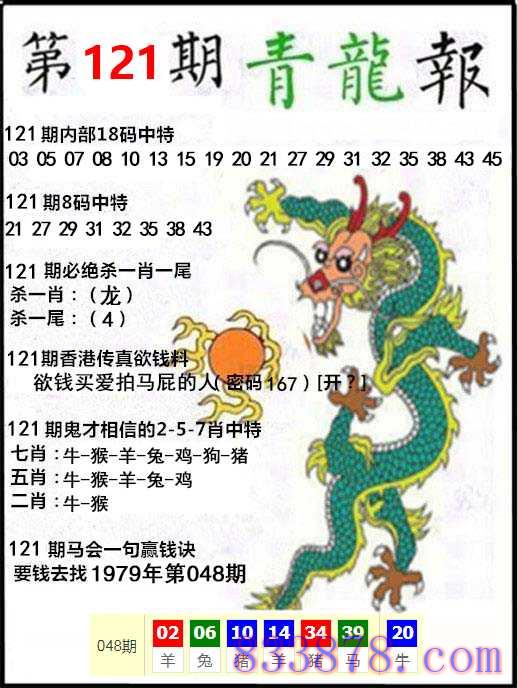 第121期青龍報
121期内部18码中特
03 05 07 08 10 13 15 19 20 21 27 29 31 32 35 38 43 45
121期8码中特
21 27 29 31 32 35 38 43
121期必绝杀一肖一尾
杀一肖：（龙）
杀一尾：（4）
121期香港传真欲钱料
欲钱买爱拍马屁的人(密码167)[开?]
121期鬼才相信的2-5-7肖中特
七肖：牛-猴-羊-兔-鸡-狗-猪
五肖：牛-猴-羊-兔-鸡
二肖：牛-猴
121期马会一句赢钱诀
要钱去找1979年第048期
048期 02 06 10 14 34 39 20
羊 兔 猪 羊 猪 马 牛
833878.com